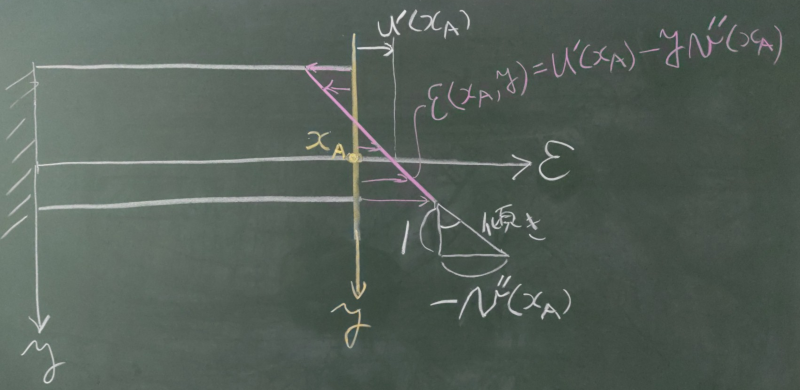 u'(x_A)
ε(x_A, y) = u'(x_A) - y v''(x_A)
x_A
ε
1
傾き
-v''(x_A)
y
y